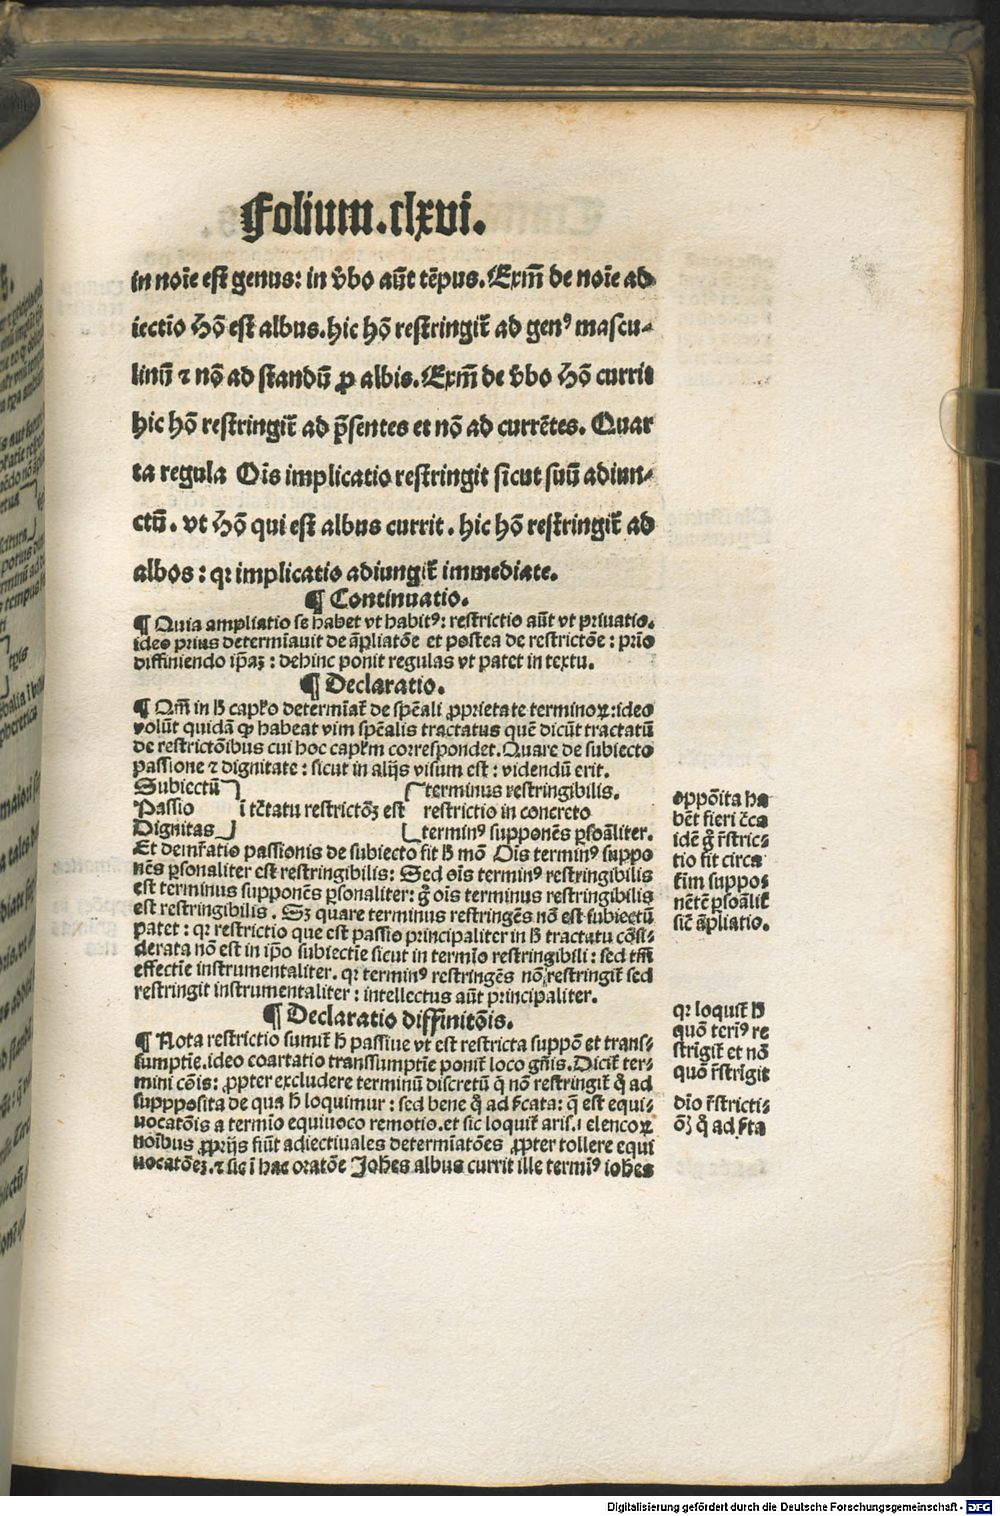 Folium.clxvi.
in noĩe est genus: in v̑bo aũt tẽpus. Exm̃ de noĩe ad
iectio Hõ est albus. hic hõ restringit̃ ad genꝰ mascu-
linũ ⁊ nõ ad standũ ꝓ albis. Exm̃ de v̑bo Hõ currit
hic hõ restringit̃ ad p̃sentes et nõ ad currẽtes. Quar
ta regula Oĩs implicatio restringit sicut suũ adiun-
ctũ. vt Hõ qui est albus currit. hic hõ restringit̃ ad
albos: qꝛ implicatio adiungit̃ immediate.
¶ Continuatio.
¶ Quia ampliatio se habet vt habitꝰ: restrictio aũt vt priuatio.
ideo prius determĩauit de ãpliatõe et postea de restrictõe: prĩo
diffiniendo ip̃aꝫ: dehinc ponit regulas vt patet in textu.
¶ Declaratio.
¶ Qm̃ in h̃ capl̃o determĩat̃ de sp̃eali ꝓprietate terminoꝝ: ideo
volũt quidã ꝙ habeat vim sp̃ealis tractatus quẽ dicũt tractatũ
de restrictõibus cui hoc capl̃m correspondet. Quare de subiecto
passione ⁊ dignitate: sicut in alijs visum est: videndũ erit.
Subiectũ terminus restringibilis.
Passio ĩ tc̃tatu restrictõꝫ est restrictio in concreto
Dignitas terminꝰ supponẽs ꝑsoãliter.
Et demr̃atio passionis de subiecto fit h̃ mõ Oĩs terminꝰ suppo
nẽs ꝑsonaliter est restringibilis: Sed oĩs terminꝰ restringibilis
est terminus supponẽs ꝑsonaliter: g̊ oĩs terminus restringibilis
est restringibilis. Sꝫ quare terminus restringẽs nõ est subiectũ
patet: qꝛ restrictio que est passio principaliter in h̃ tractatu cõsi-
derata nõ est in ip̃o subiectĩe sicut in termĩo restringibili: sed tm̃
effectĩe instrumentaliter. qꝛ terminꝰ restringẽs nõ restringit̃ sed
restringit instrumentaliter: intellectus aũt principaliter.
¶ Declaratio diffinitõis.
¶ Nota restrictio sumit̃ h̃ passiue vt est restricta suppõ et trans-
sumptĩe. ideo coartatio transsumptĩe ponit̃ loco gñis. Dicit̃ ter-
mini cõis: ꝓpter excludere terminũ discretũ q̃ nõ restringit̃ q̊ ad
suppposita de qua h̃ loquimur: sed bene q̊ ad s̃cata: q̃ est equi-
uocatõis a termĩo equiuoco remotio. et sic loquit̃ aris. ĩ elencoꝝ
noĩbus ꝓprijs fiũt adiectiuales determĩatões ꝓpter tollere equi
uocatõeꝫ. ⁊ sic ĩ hac oratõe Johẽs albus currit ille termĩꝰ iohẽs
oppõita ha
bẽt fieri c̃ca
idẽ g̊ r̃stric-
tio fit circa
t̃im suppo-
nẽtẽ ꝑsoãlit̃
sic̃ ãpliatio.
qꝛ loquit̃ h̃
quõ terĩꝰ re
strĩgit̃ et nõ
quõ r̃strĩgit
dĩo r̃stricti-
õꝫ q̊ ad s̃ta
Digitalisierung gefördert durch die Deutsche Forschungsgemeinschaft - DFG